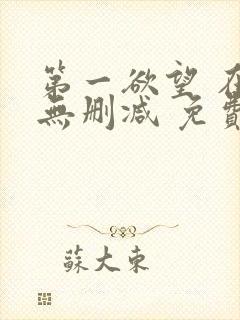 第一欲望 在
無删減 免費
蘇大東